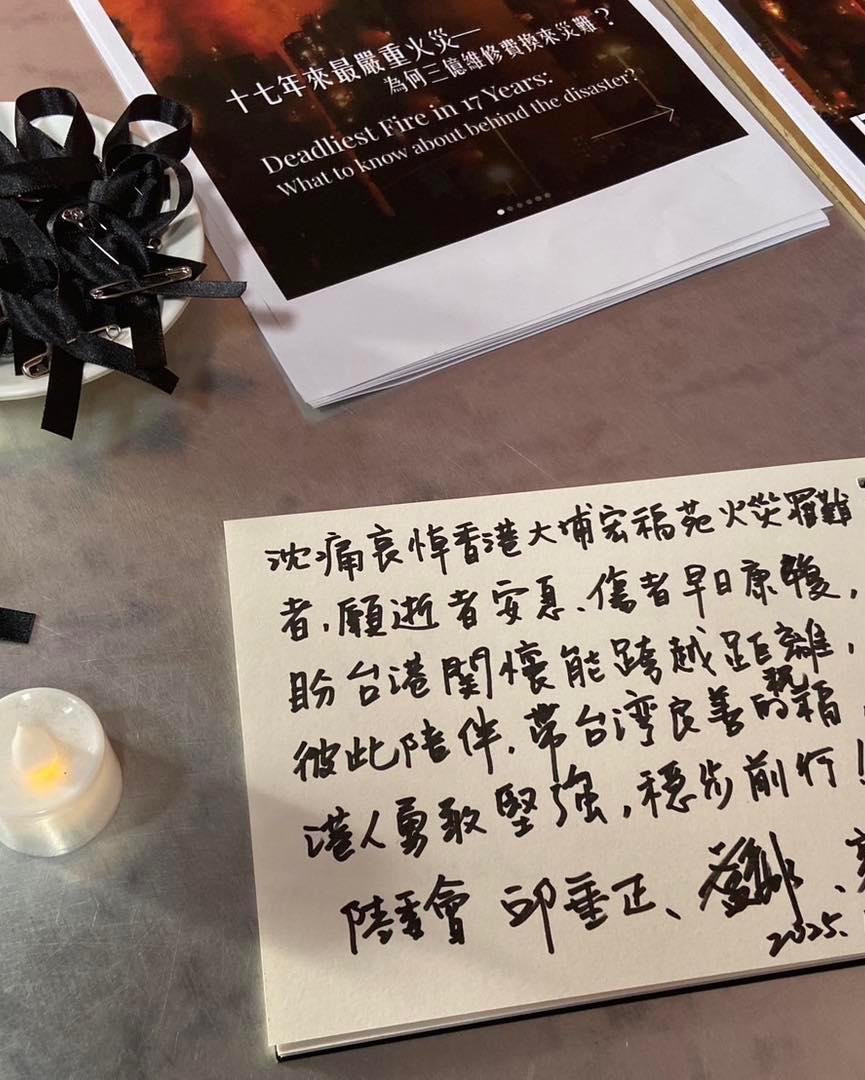 十七年來最嚴重火災—
為何三億維修費換來災難？
Deadliest Fire in 17 Years:
What to know about behind the disaster?
沈痛哀悼香港大埔宏福苑火災罹難
者，願逝者安息、傷者早日康復，
盼台港關懷能跨越距離，
彼此陪伴，帶台湾良善的祝福，
港人勇敢堅強，穩步前行！
陸委會 邱垂正、
2025.